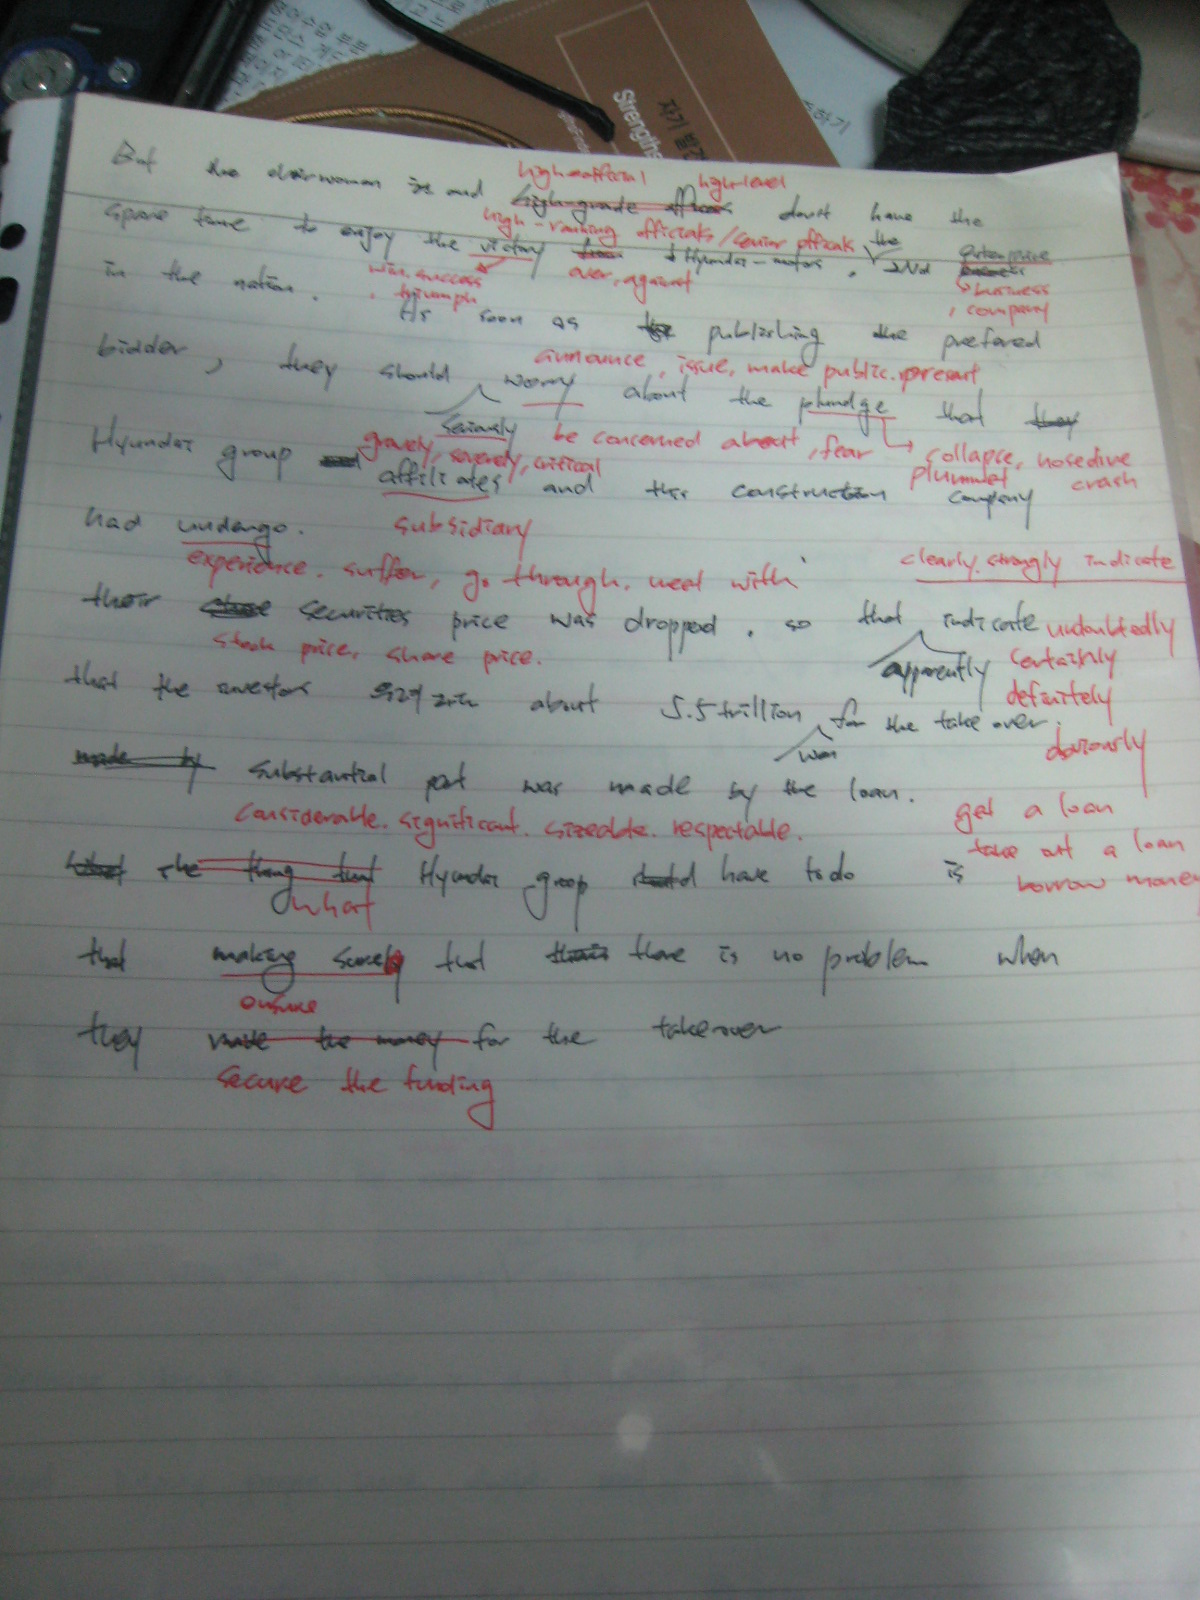 자기 발견
Strengths
high-official high-level
But the chairwoman and high-grade don't have the
high-ranking officials/senior officials the
spare time to enjoy the victory Hyundai-motors, 2nd enterprise
win, success over, against business
, triumph , company
in the nation. As soon as publishing the preferred
announce, issue, make public, present
bidder, they should worry about the plundge that they
seriously be concerned about, fear collapse, nosedive
gravely, severely, critical plummet crash
Hyundai group affiliates and this construction company
had undergo. subsidiary
experience. suffer, go through, meet with clearly. strongly indicate
their securities price was dropped. so that indicate undoubtedly
stock price, share price. apparently certainly
definitely
that the investors about 5.5 trillion for the take over.
won obviously
made by substantial part was made by the loan.
considerable. significant. sizeable. respectable. get a loan
take out a loan
borrow money
the thing that Hyundai group have to do is
what
that making surely that there is no problem when
ensure
they make the money for the takeover
secure the funding